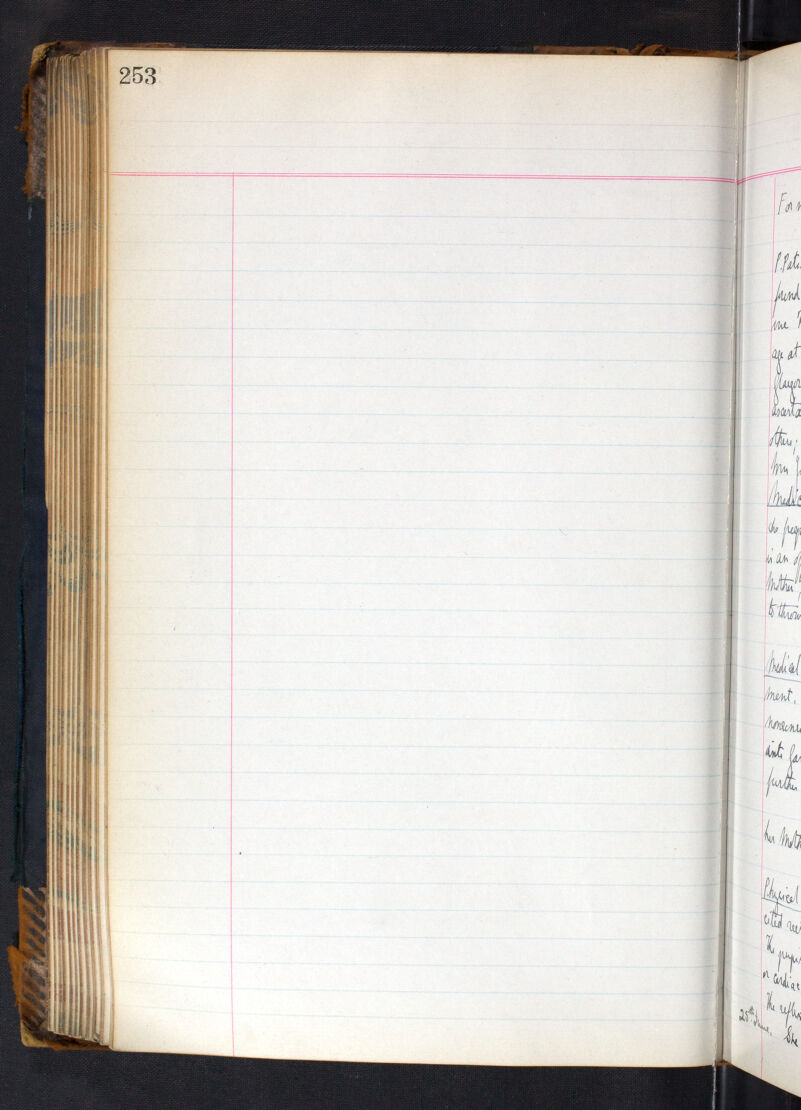 253
For
P. Pat
friend
one
age at
Glasgo
ascerta
others;
Mrs
Medic
is an
Mother,
to throw
Medical
ment.
nonsense
into
further
her Moth
Physical
cited
The pupi
or cardiac
The reflex
25th June. She